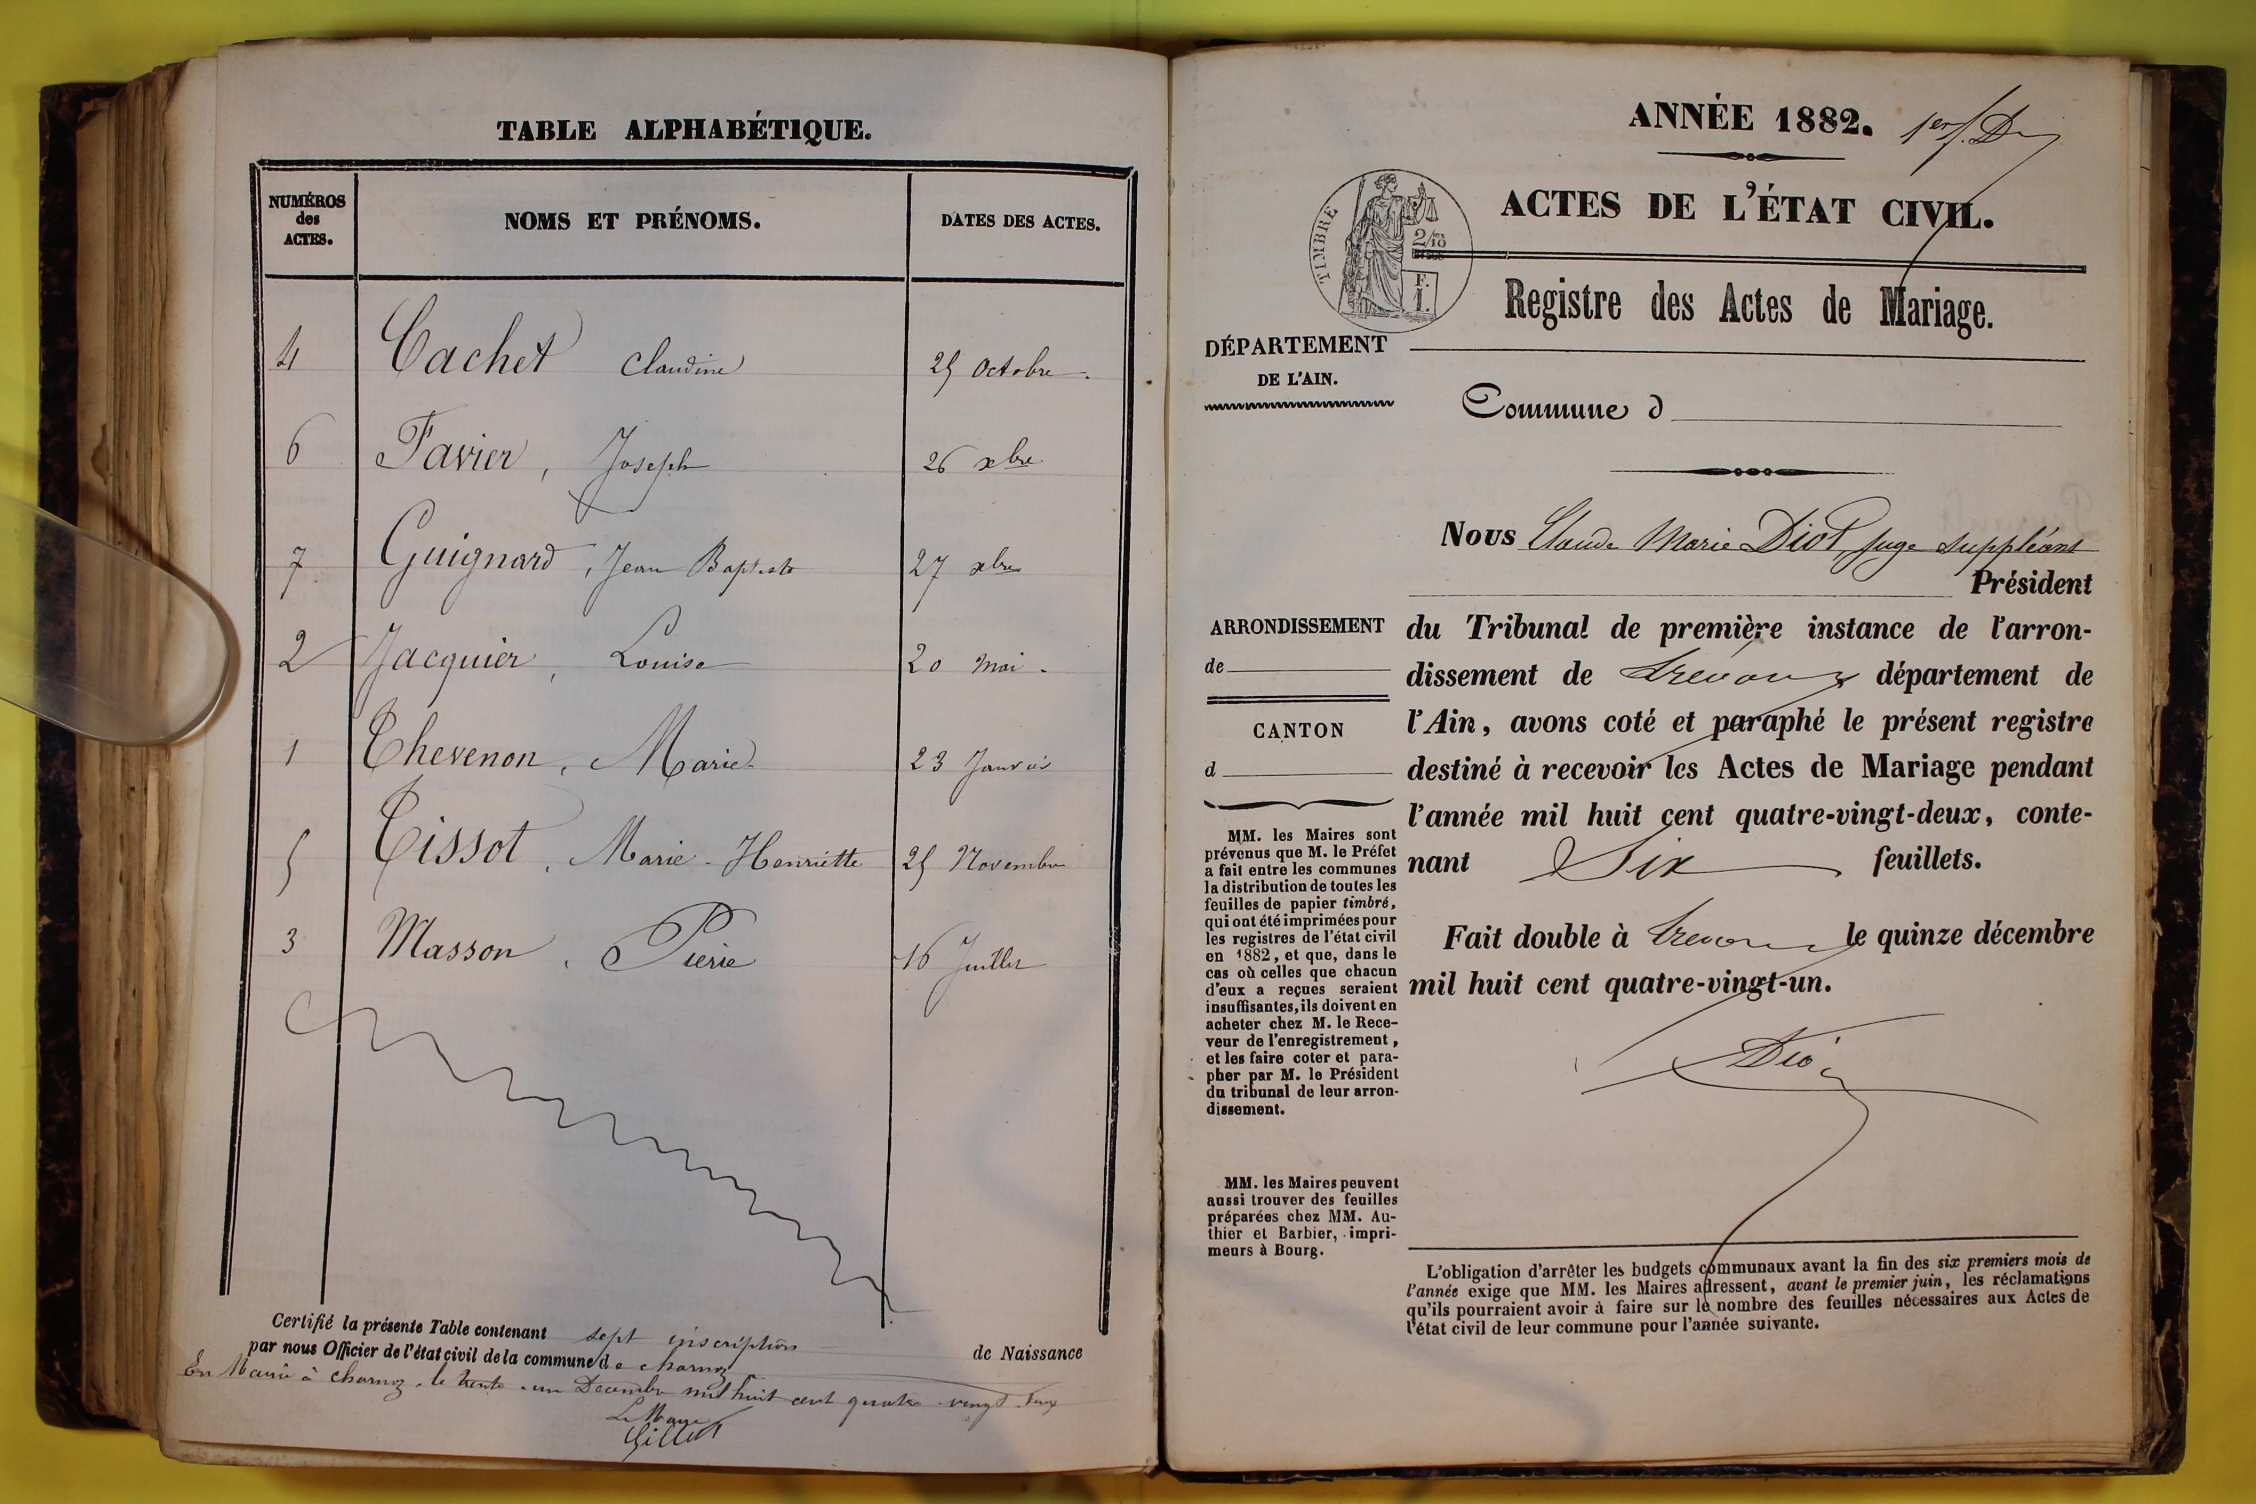 TABLE ALPHABÉTIQUE.
NUMÉROS
des
ACTES.
NOMS ET PRÉNOMS.
DATES DES ACTES.
4 Cachet Claudine 25 Octobre.
6 Favier, Joseph 26 xbre
7 Guignard, Jean Baptiste 27 xbre
2 Jacquier, Louise 20 Mai.
1 Thevenon, Marie 23 Janvier
5 Tissot, Marie-Henriette 25 Novembre
3 Masson, Pierre 16 Juillet
Certifié la présente Table contenant sept inscriptions de Naissance
par nous Officier de l'état civil de la commune de Charnoz
En Mairie à Charnoz, le trente-un Décembre mil huit cent quatre-vingt-deux
Le Maire
Gillet
ANNÉE 1882. 1er f.
ACTES DE L'ÉTAT CIVIL.
TIMBRE
2/10
F.
1.
Registre des Actes de Mariage.
DÉPARTEMENT
DE L'AIN.
Commune d
Nous Claude Marie Diot, juge suppléant
Président
du Tribunal de première instance de l'arron-
dissement de Trévoux département de
l'Ain, avons coté et paraphé le présent registre
destiné à recevoir les Actes de Mariage pendant
l'année mil huit cent quatre-vingt-deux, conte-
nant Six feuillets.
Fait double à Trévoux le quinze décembre
mil huit cent quatre-vingt-un.
Diot
ARRONDISSEMENT
de
CANTON
d
MM. les Maires sont
prévenus que M. le Préfet
a fait entre les communes
la distribution de toutes les
feuilles de papier timbré,
qui ont été imprimées pour
les registres de l'état civil
en 1882, et que, dans le
cas où celles que chacun
d'eux a reçues seraient
insuffisantes, ils doivent en
acheter chez M. le Rece-
veur de l'enregistrement,
et les faire coter et para-
pher par M. le Président
du tribunal de leur arron-
dissement.
MM. les Maires peuvent
aussi trouver des feuilles
préparées chez MM. Au-
thier et Barbier, impri-
meurs à Bourg.
L'obligation d'arrêter les budgets communaux avant la fin des six premiers mois de
l'année exige que MM. les Maires adressent, avant le premier juin, les réclamations
qu'ils pourraient avoir à faire sur le nombre des feuilles nécessaires aux Actes de
l'état civil de leur commune pour l'année suivante.